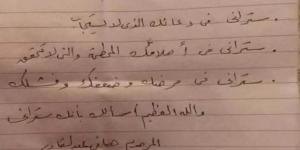 . ستراني في دعائك الذي لا يستجاب
. ستراني في أحلامك المحطمة والتي لا تتحقق
. ستراني في مرضك وضعفك وفشلك
والله العظيم اسألك بأنك ستراني
المرحوم